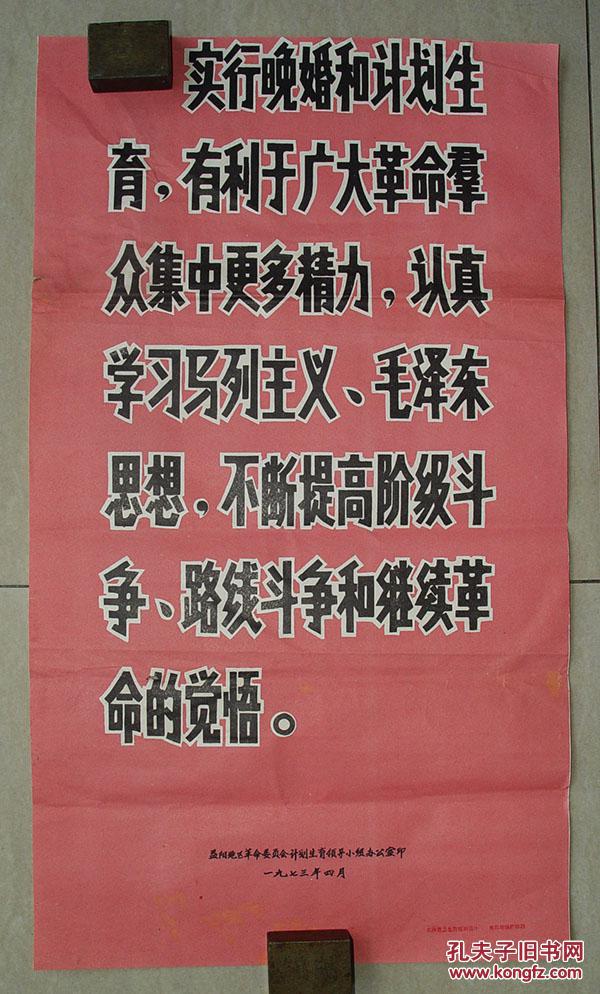 实行晚婚和计划生
育，有利于广大革命羣
众集中更多精力，认真
学习马列主义、毛泽东
思想，不断提高阶级斗
争、路线斗争和继续革
命的觉悟。
益阳地区革命委员会计划生育领导小组办公室印
一九七三年四月
孔夫子旧书网
www.kongfz.com